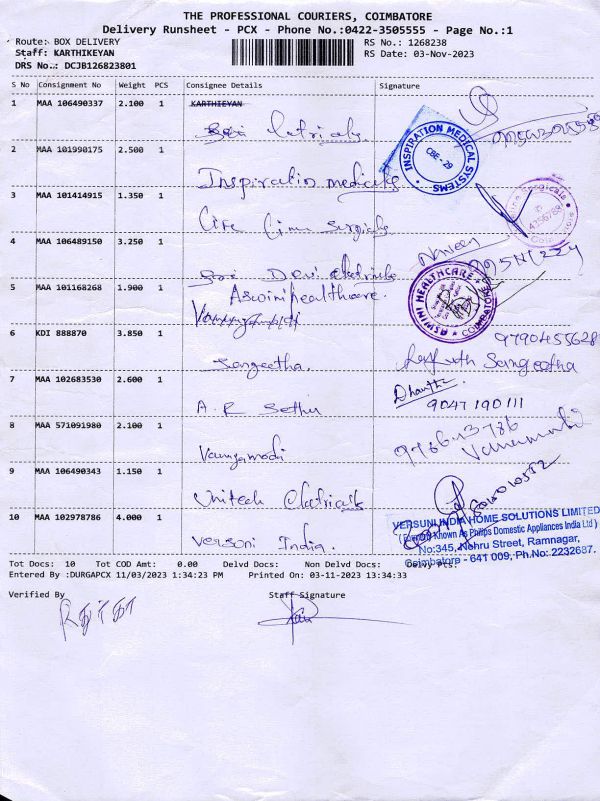 THE PROFESSIONAL COURIERS, COIMBATORE
Delivery Runsheet - PCX - Phone No.:0422-3505555 - Page No.:1
Route: BOX DELIVERY RS No.: 1268238
Staff: KARTHIKEYAN RS Date: 03-Nov-2023
DRS No.: DCJB126823801
S No Consignment No Weight PCS Consignee Details Signature
1 MAA 106490337 2.100 1 KARTHIEYAN
Sri Eletricals
2 MAA 101990175 2.500 1
INSPIRATION MEDICAL SYSTEMS
CBE - 29
Inspiration medicals
3 MAA 101414915 1.350 1
Surgicals
4 MAA 106489150 3.250 1
Naveen
Sri Devi Eletricals
5 MAA 101168268 1.900 1 Aswini healthcare.
ASWINI HEALTHCARE COIMBATORE
6 KDI 888870 3.850 1
9790455628
Sangeetha. Sangeetha
7 MAA 102683530 2.600 1
9047190111
A. R Sethu
8 MAA 571091980 2.100 1
Vamgamodi
9 MAA 106490343 1.150 1
Unitech Eletricals
10 MAA 102978786 4.000 1
VERSUNI INDIA HOME SOLUTIONS LIMITED
(Formerly Known As Philips Domestic Appliances India Ltd)
No:345, Nehru Street, Ramnagar,
Coimbatore - 641 009, Ph.No: 2232687.
Versoni India.
Tot Docs: 10 Tot COD Amt: 0.00 Delvd Docs: Non Delvd Docs: Delvy Pts:
Entered By :DURGAPCX 11/03/2023 1:34:23 PM Printed On: 03-11-2023 13:34:33
Verified By Staff Signature